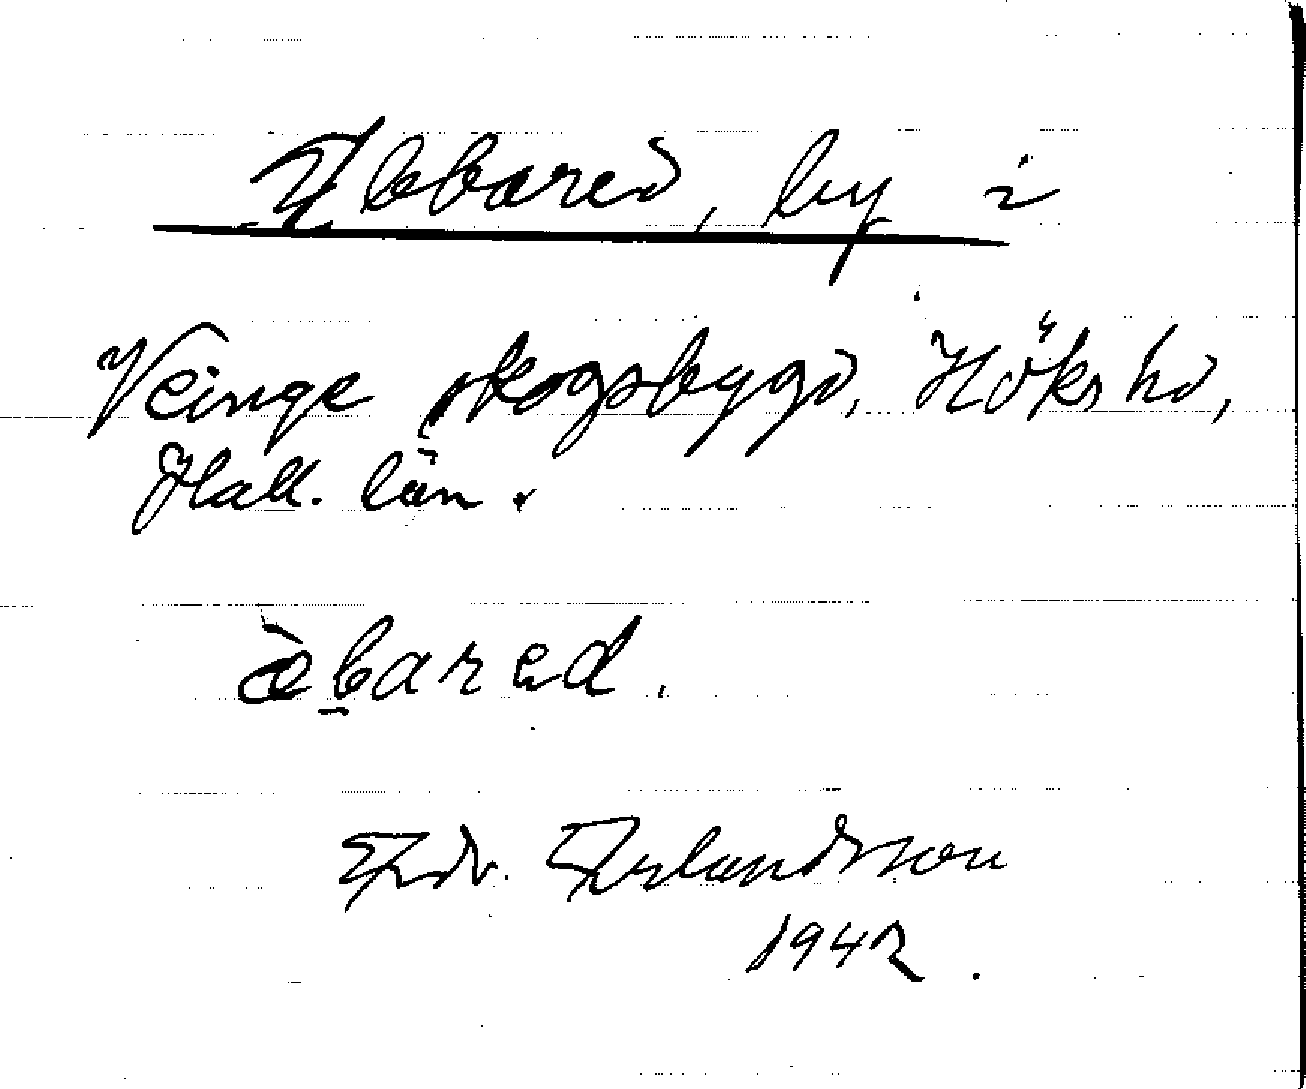 Äbbared, by i
Veinge skogsbygd, Höks hd,
Hall. län.
æ̀bared.
Edv. Erlandsson
1942.